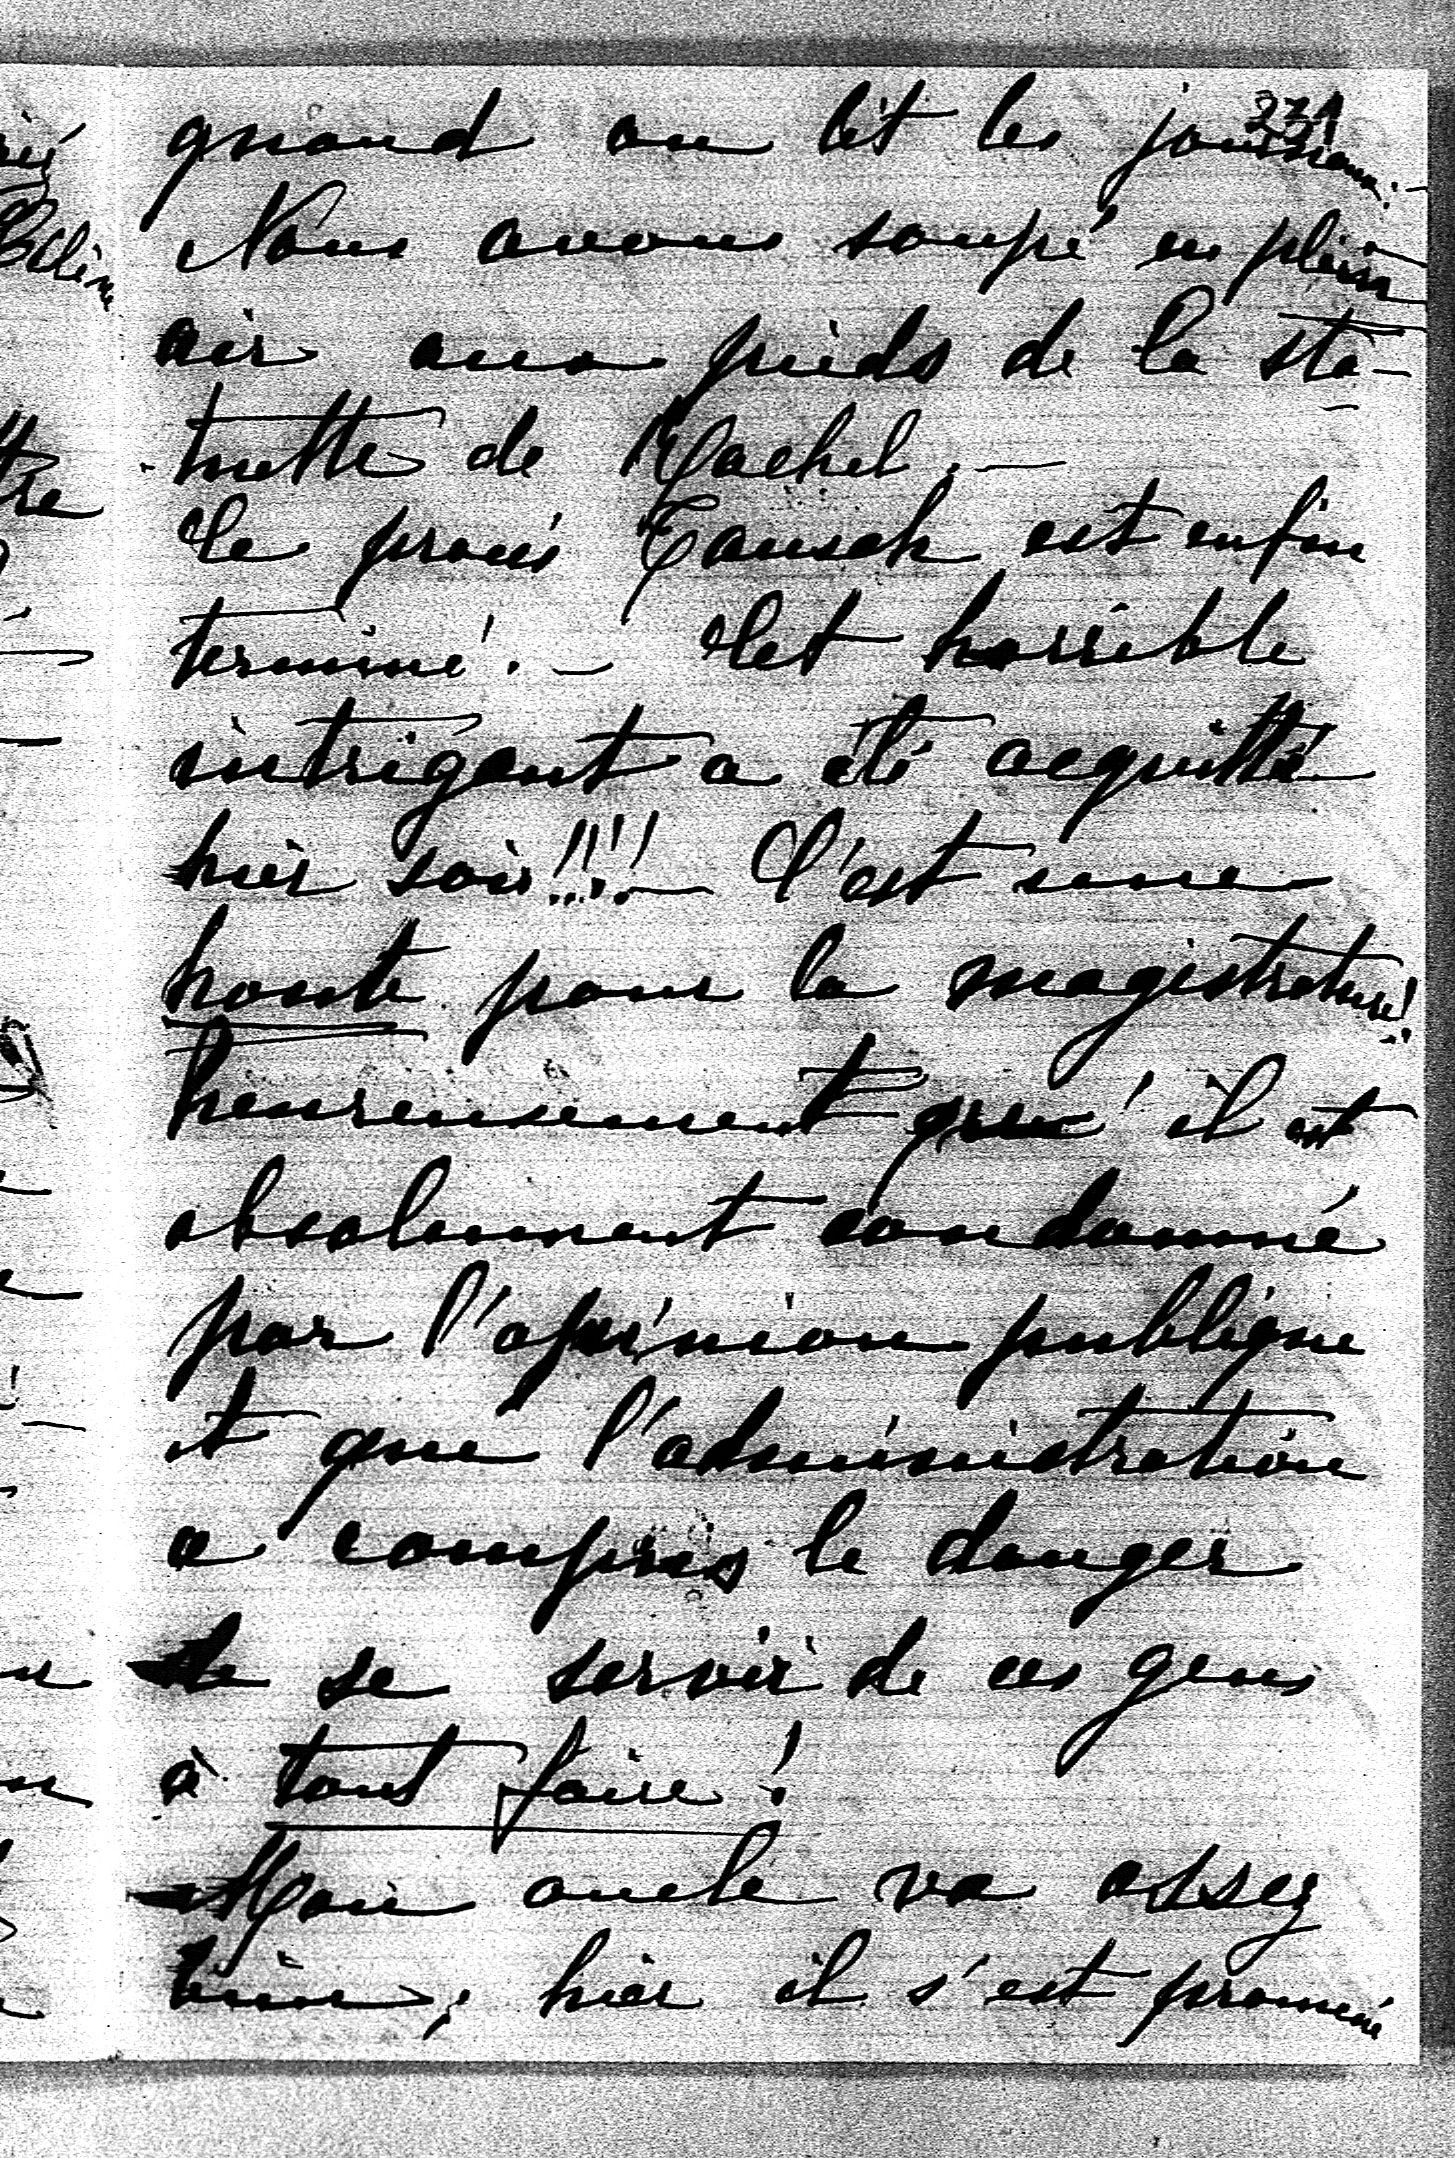 231
quand on lit les journaux. —
Nous avons soupé en plein
air aux pieds de la sta-
tuette de Rachel. —
Le procès Tausch est enfin
terminé! — Cet horrible
intrigant a été acquitté
hier soir!!!! — C'est une
honte pour la magistrature!
heureusement qu'il est
absolument condamné
par l'opinion publique
et que l'administration
a compris le danger
de se servir de ces gens
à tout faire!
Mon oncle va assez
bien; hier il s'est promené